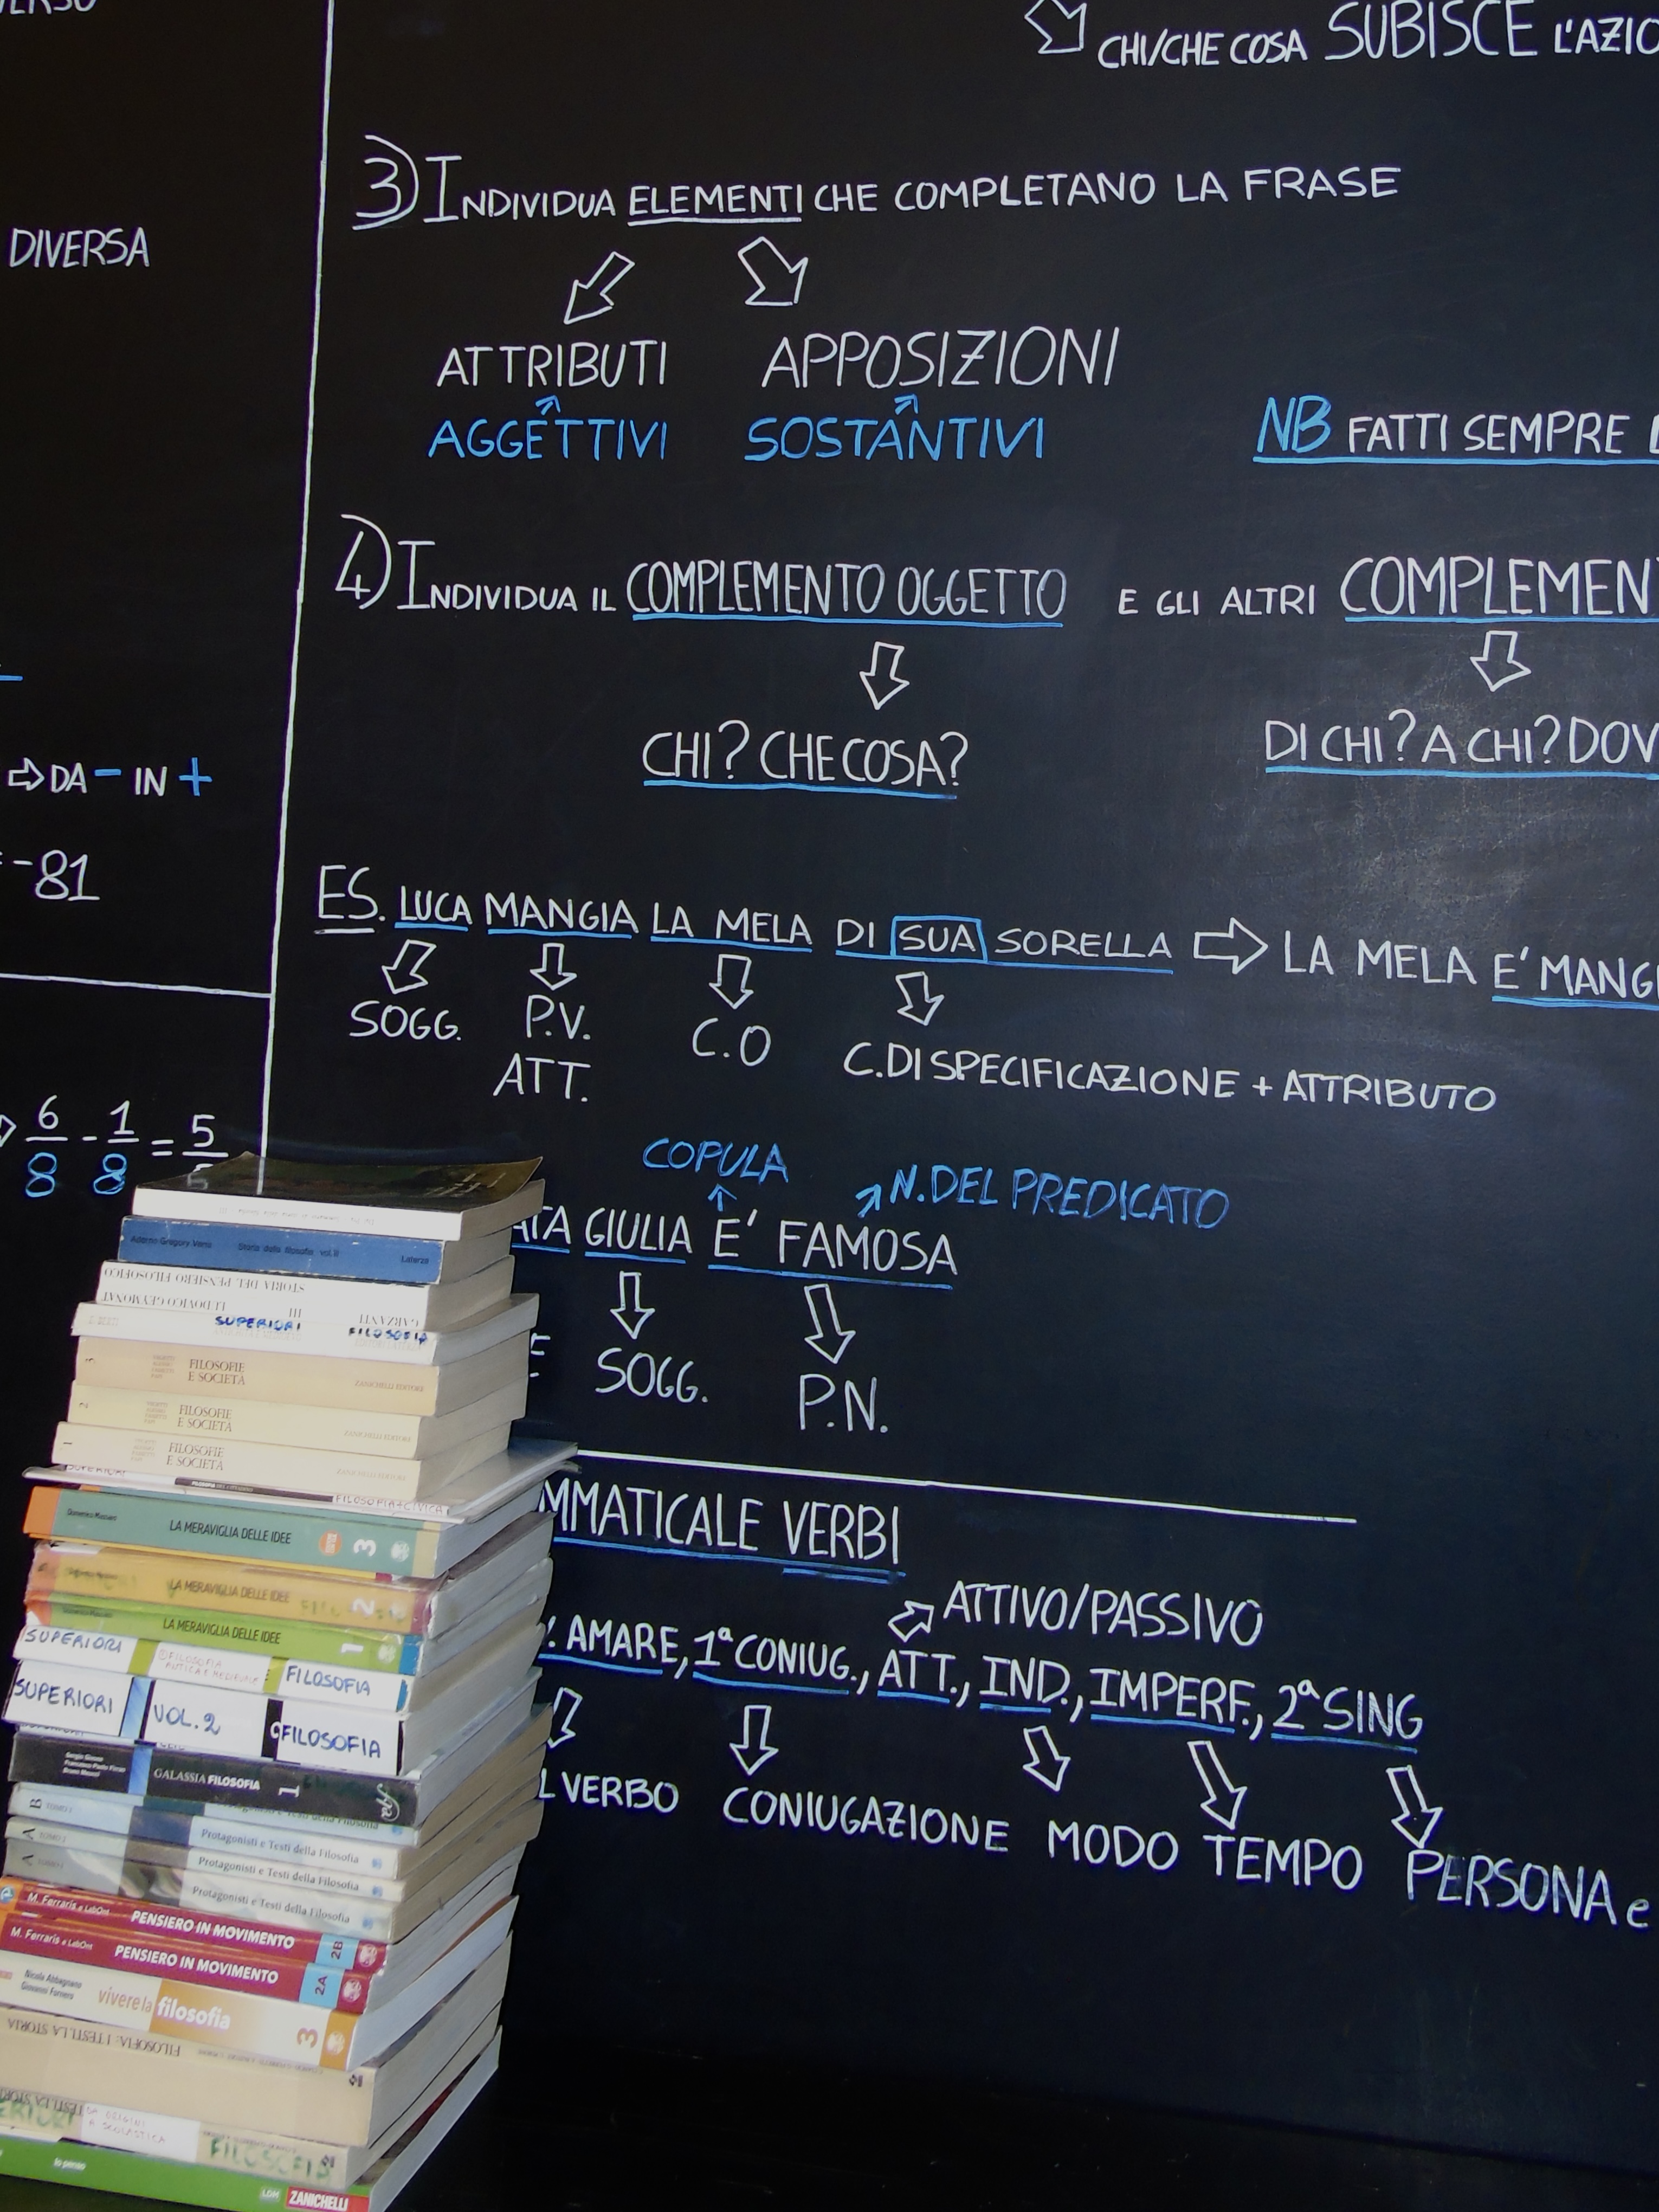 CHI/CHE COSA SUBISCE L'AZIO
3) INDIVIDUA ELEMENTI CHE COMPLETANO LA FRASE
DIVERSA
ATTRIBUTI APPOSIZIONI
AGGETTIVI SOSTANTIVI
NB FATTI SEMPRE
4) INDIVIDUA IL COMPLEMENTO OGGETTO E GLI ALTRI COMPLEMEN
CHI? CHE COSA?
DI CHI? A CHI? DOV
DA - IN +
-81
ES. LUCA MANGIA LA MELA DI SUA SORELLA ⇨ LA MELA E' MANG
SOGG. P.V. C.O C.DI SPECIFICAZIONE + ATTRIBUTO
ATT.
6/8 - 1/8 = 5/
COPULA N.DEL PREDICATO
ATA GIULIA E' FAMOSA
SOGG. P.N.
MMATICALE VERBI
ATTIVO/PASSIVO
: AMARE, 1ª CONIUG., ATT., IND., IMPERF., 2ª SING
L VERBO CONIUGAZIONE MODO TEMPO PERSONA e
Adorno Gregory Verra Storia della filosofia vol.II Laterza
STORIA DEL PENSIERO FILOSOFICO
LUDOVICO GEYMONAT III GARZANTI
SUPERIORI FILOSOFIA
3 FILOSOFIE E SOCIETÀ ZANICHELLI EDITORE
2 FILOSOFIE E SOCIETÀ ZANICHELLI EDITORE
1 FILOSOFIE E SOCIETÀ ZANICHELLI EDITORE
SUPERIORI FILOSOFIA+CIVICA
LA MERAVIGLIA DELLE IDEE 3
LA MERAVIGLIA DELLE IDEE 2
LA MERAVIGLIA DELLE IDEE 1
SUPERIORI FILOSOFIA ANTICA E MEDIEVALE FILOSOFIA
SUPERIORI VOL.2 FILOSOFIA
GALASSIA FILOSOFIA 1
B TOMO
A TOMO 2 Protagonisti e Testi della Filosofia
A TOMO Protagonisti e Testi della Filosofia
Protagonisti e Testi della Filosofia
M. Ferraris e LabOnt PENSIERO IN MOVIMENTO 2B
M. Ferraris e LabOnt PENSIERO IN MOVIMENTO 2A
Nicola Abbagnano
Giovanni Fornero
vivere la filosofia 3
FILOSOFIA: I TESTI, LA STORIA
I TESTI, LA STORIA
ORIGINI
A SCOLASTICA
FILOSOFIA
Io penso LDM ZANICHELLI